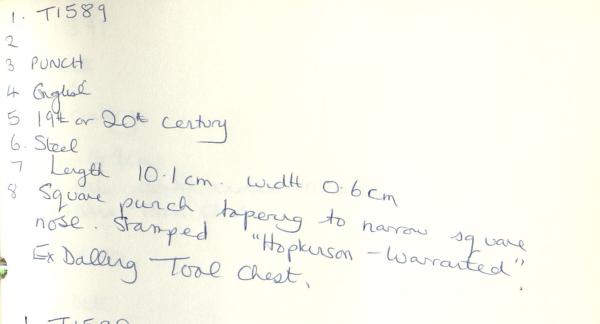 1. T1589
2
3 PUNCH
4 English
5 19th or 20th century
6. Steel
7 Length 10.1cm. width 0.6cm
8 Square punch tapering to narrow square
nose. Stamped "Hopkinson - Warranted".
Ex Dalling Tool Chest.
1 T1590